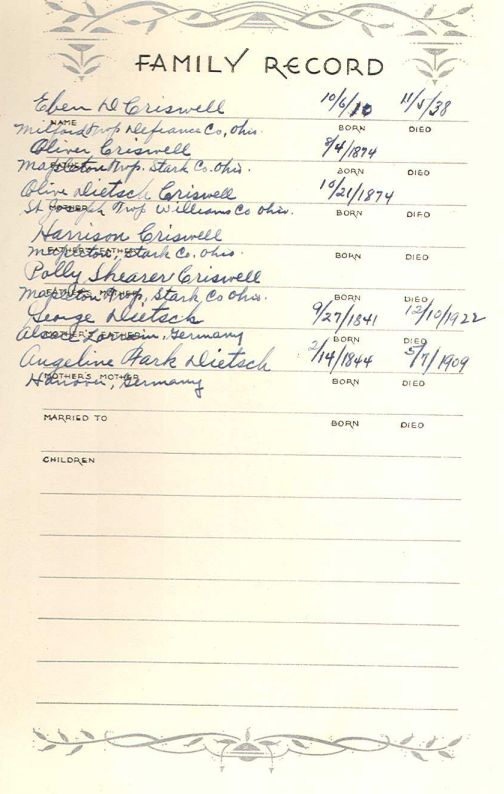 FAMILY RECORD
Eben D Criswell 10/6/10 11/5/38
NAME BORN DIED
Milford Twp Defiance Co, Ohio.
Oliver Criswell 8/4/1874
FATHER BORN DIED
Mapleton Twp. Stark Co. Ohio.
Olive Dietsch Criswell 10/21/1874
MOTHER BORN DIED
St Joseph Twp Williams Co Ohio.
Harrison Criswell
FATHER'S FATHER BORN DIED
Mapleton, Stark Co. Ohio.
Polly Shearer Criswell
FATHER'S MOTHER BORN DIED
Mapleton Twp, Stark Co Ohio.
George Dietsch 9/27/1841 12/10/1922
MOTHER'S FATHER BORN DIED
Alsace Lorrain, Germany
Angeline Hark Dietsch 2/14/1844 5/7/1909
MOTHER'S MOTHER BORN DIED
Hanover, Germany
MARRIED TO BORN DIED
CHILDREN